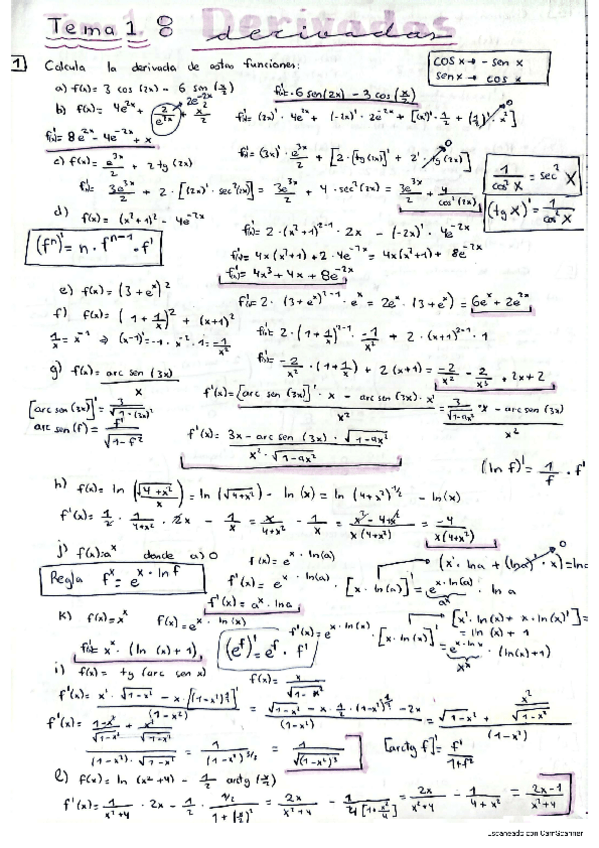 Tema 1 : derivadas
1 Calcula la derivada de estas funciones:
cos x → - sen x
sen x → cos x
a) f(x) = 3 cos (2x) - 6 sen (x/2)   f'(x) = - 6 sen(2x) - 3 cos (x/2)
b) f(x) = 4e^2x + 2/e^2x + x²/2   2e^-2x   f'(x) = (2x)' · 4e^2x + (-2x)' · 2e^-2x +
f'(x) = 8e^2x - 4e^-2x + x
c) f(x) = e^3x/2 + 2 tg (2x)   f'(x) = (3x)' · e^3x/2 + [2 · [tg(2x)]' + 2' · tg(2x)]   0
f'(x) = 3e^3x/2 + 2 · [(2x)' · sec²(2x)] = 3e^3x/2 + 4 · sec²(2x) = 3e^3x/2 + 4/cos²(2x)
1/cos² x = sec² x
(tg x)' = 1/cos² x
d) f(x) = (x²+1)² - 4e^-2x   f'(x) = 2 · (x²+1)^2-1 · 2x - (-2x)' · 4e^-2x
(fⁿ)' = n · f^n-1 · f'
f'(x) = 4x (x²+1) + 2 · 4e^-2x = 4x(x²+1) + 8e^-2x
f'(x) = 4x³ + 4x + 8e^-2x
e) f(x) = (3 + e^x)²   f'(x) = 2 · (3 + e^x)^2-1 · e^x = 2e^x · (3 + e^x) = 6e^x + 2e^2x
f) f(x) = (1 + 1/x)² + (x+1)²   f'(x) = 2 · (1 + 1/x)^2-1 · -1/x² + 2 · (x+1)^2-1 · 1
1/x = x^-1 ⇒ (x^-1)' = -1 · x^-2 · 1 = -1/x²
f'(x) = -2/x² · (1 + 1/x) + 2 (x+1) = -2/x² - 2/x³ + 2x + 2
g) f(x) = arc sen (3x)/x   f'(x) = [arc sen (3x)]' · x - arc sen (3x) · x'/x² = 3/√1-9x² · x - arc sen (3x)/x²
[arc sen (3x)]' = 3/√1-(3x)²
arc sen (f) = f'/√1-f²
f'(x) = 3x - arc sen (3x) · √1-9x²/x² · √1-9x²
(ln f)' = 1/f · f'
h) f(x) = ln (√4+x²/x) = ln (√4+x²) - ln (x) = ln (4+x²)^1/2 - ln (x)
f'(x) = 1/2 · 1/4+x² · 2x - 1/x = x/4+x² - 1/x = x² - 4 + x²/x(4+x²) = -4/x(4+x²)
j) f(x) = a^x donde a>0   f(x) = e^x · ln(a)   (x' · ln a + (ln a)' · x) = ln a   0
Regla f^x = e^x · ln f   f'(x) = e^x · ln(a) · [x · ln(a)]' = e^x · ln(a) · ln a   a^x
f'(x) = a^x · ln a
k) f(x) = x^x   f(x) = e^x · ln (x)   [x' · ln(x) + x · ln(x)'] =
= ln(x) + 1
f'(x) = x^x · (ln (x) + 1)   (e^f)' = e^f · f'   f'(x) = e^x · ln(x) · [x · ln(x)]' = e^x · ln x · (ln(x) + 1)   x^x
i) f(x) = tg (arc sen x)   f(x) = x/√1-x²
f'(x) = x' · √1-x² - x · [(1-x²)^1/2]'/(1-x²) = √1-x² - x · 1/2 · (1-x²)^-1/2 · -2x/(1-x²) = √1-x² + x²/√1-x²/(1-x²)
f'(x) = 1-x²/√1-x² + x²/√1-x²
/(1-x²) · √1-x² = 1/(1-x²)^3/2 = 1/√(1-x²)³   [arctg f]' = f'/1+f²
l) f(x) = ln (x²+4) - 1/2 arctg (x/2)
f'(x) = 1/x²+4 · 2x - 1/2 · 1/2/1+(x/2)² = 2x/x²+4 - 1/4[1+x²/4] = 2x/x²+4 - 1/4+x² = 2x-1/x²+4
Escaneado con CamScanner